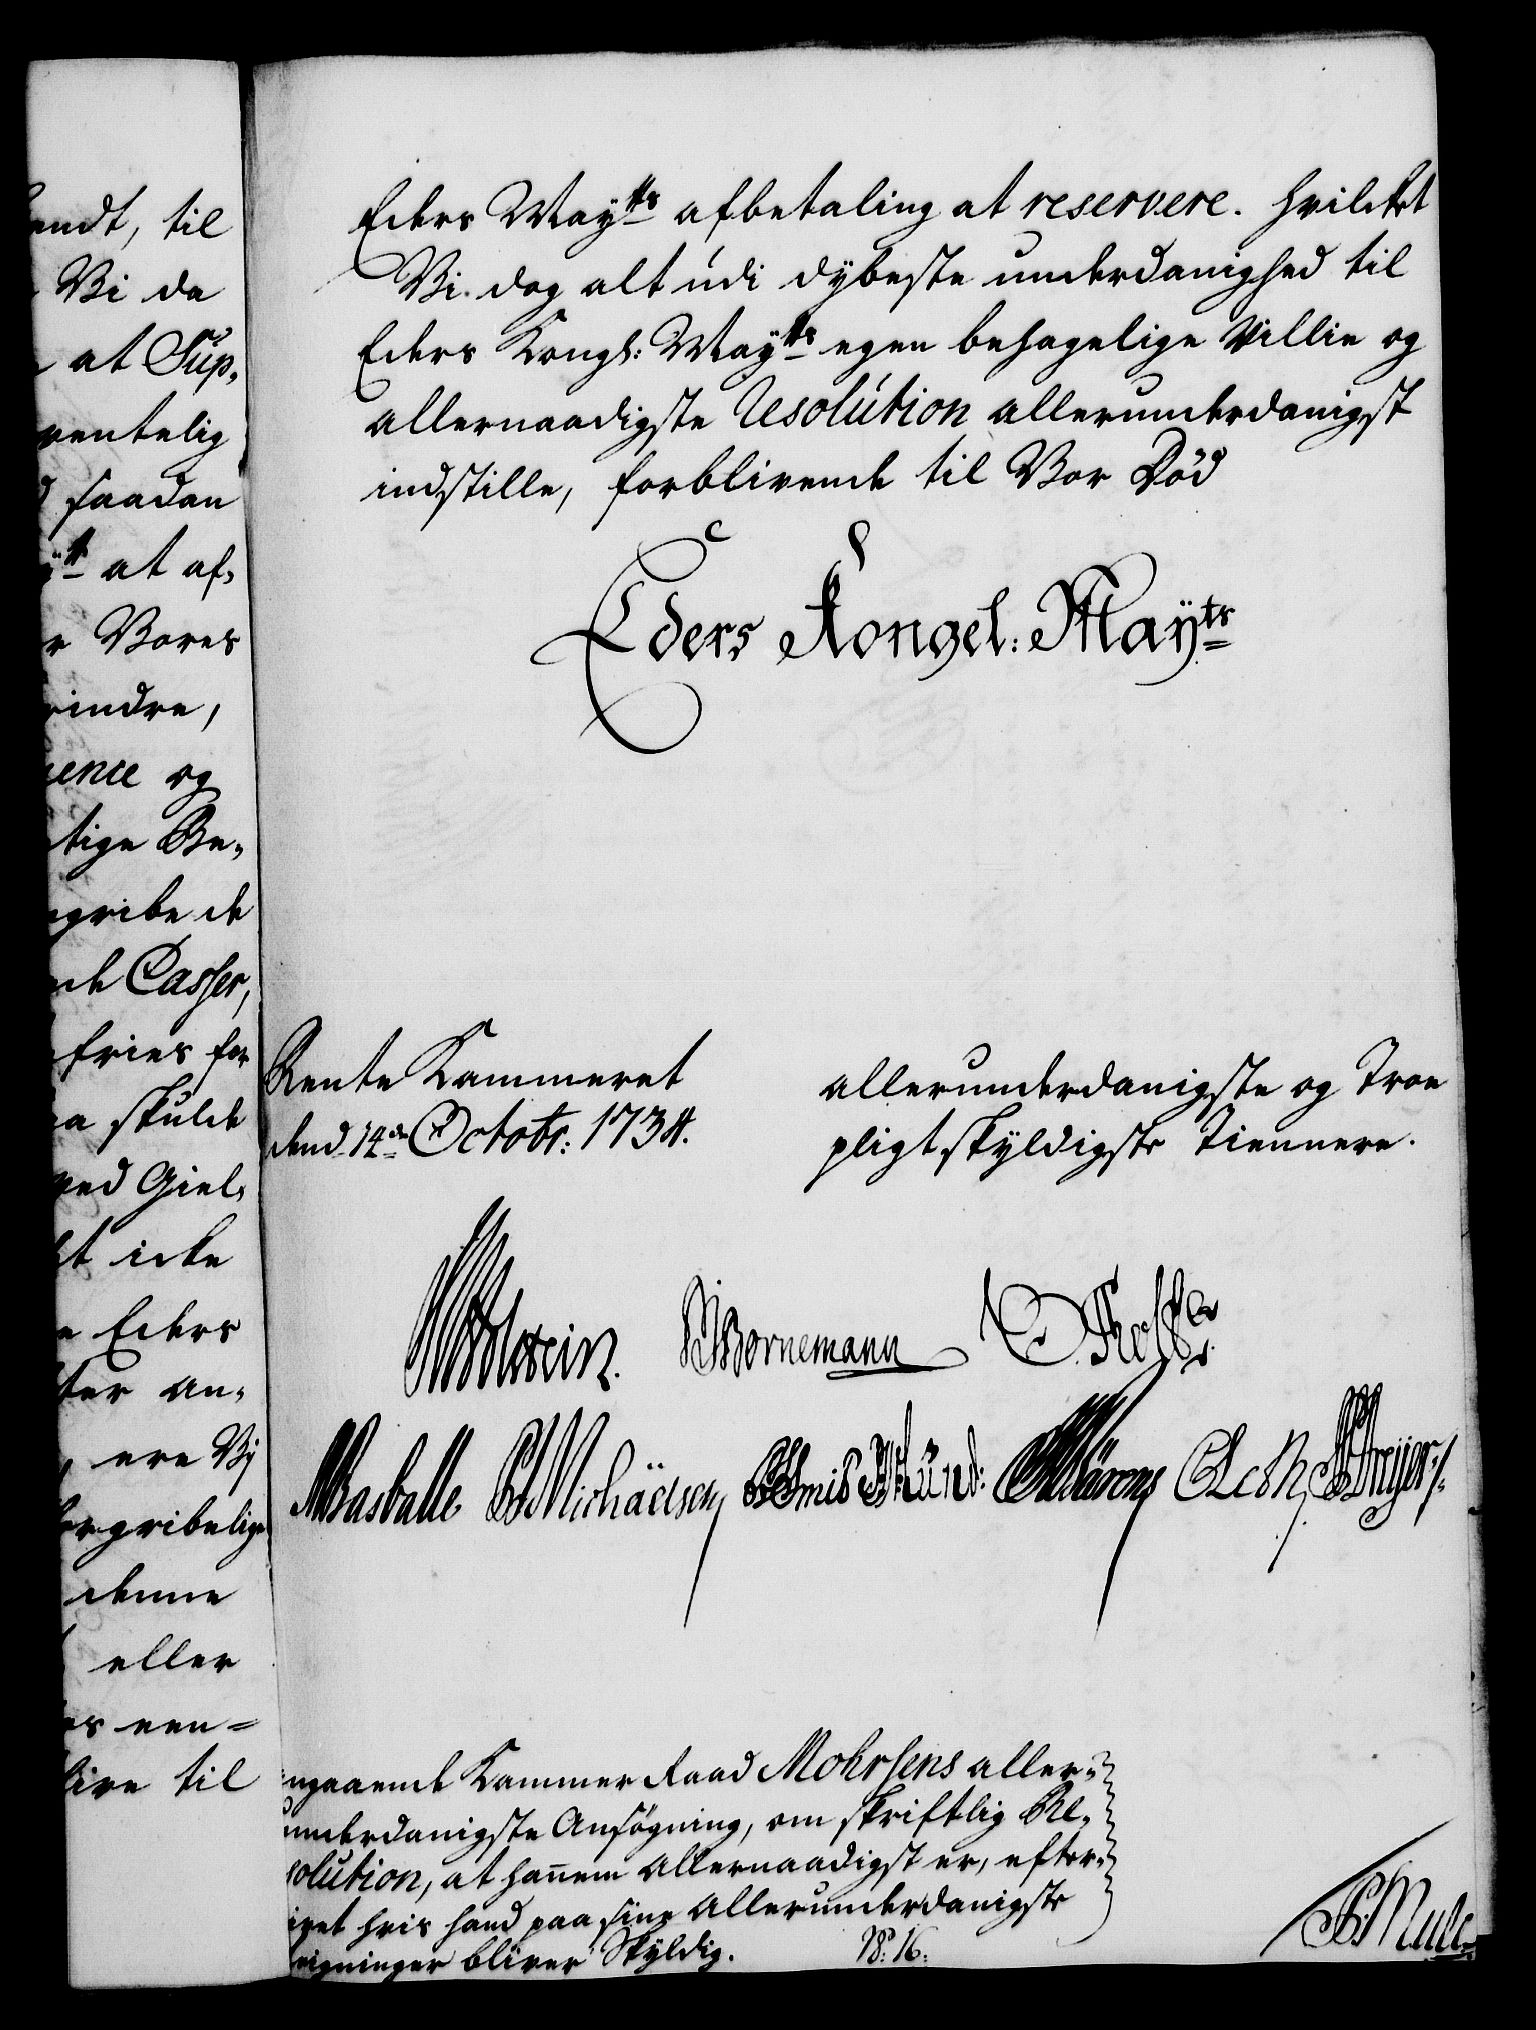 endt, til
Vi da
at Sup,
ventelig
saadan
ÿtt at af,
r Vores
rindre,
ence og
tige Be,
gribe de
nde Casser,
fries for
a skulde
ved Giel,
t icke
Eders
ter an,
ere Vi
gribelige
denne
eller
es een=
live til
Eders Maÿtts afbetaling at reservere. hvilcket
Vi dog alt udi dÿbeste underdanighed til
Eders Kongl: Maÿtts egen behagelige Villie og
allernaadigste Resolution allerunderdanigst
indstille, forblivende til Vor Död
Eders Kongel: Maÿts
Rente Kammeret
dend 14de Octobr: 1734.
allerunderdanigste og Troe
pligtskÿldigste Tiennere.
Holstein. Bornemann
Basballe Michäelsen Münd: Leth Dreÿer
ngaaende Kammer Raad Mohrsens aller,
underdanigste Ansögning, om skriftlig Re,
solution, at hannem allernaadigst er, efter,
ivet hvis hand paa sine allerunderdanigste
egninger bliver Skÿldig. No: 16.
Mule